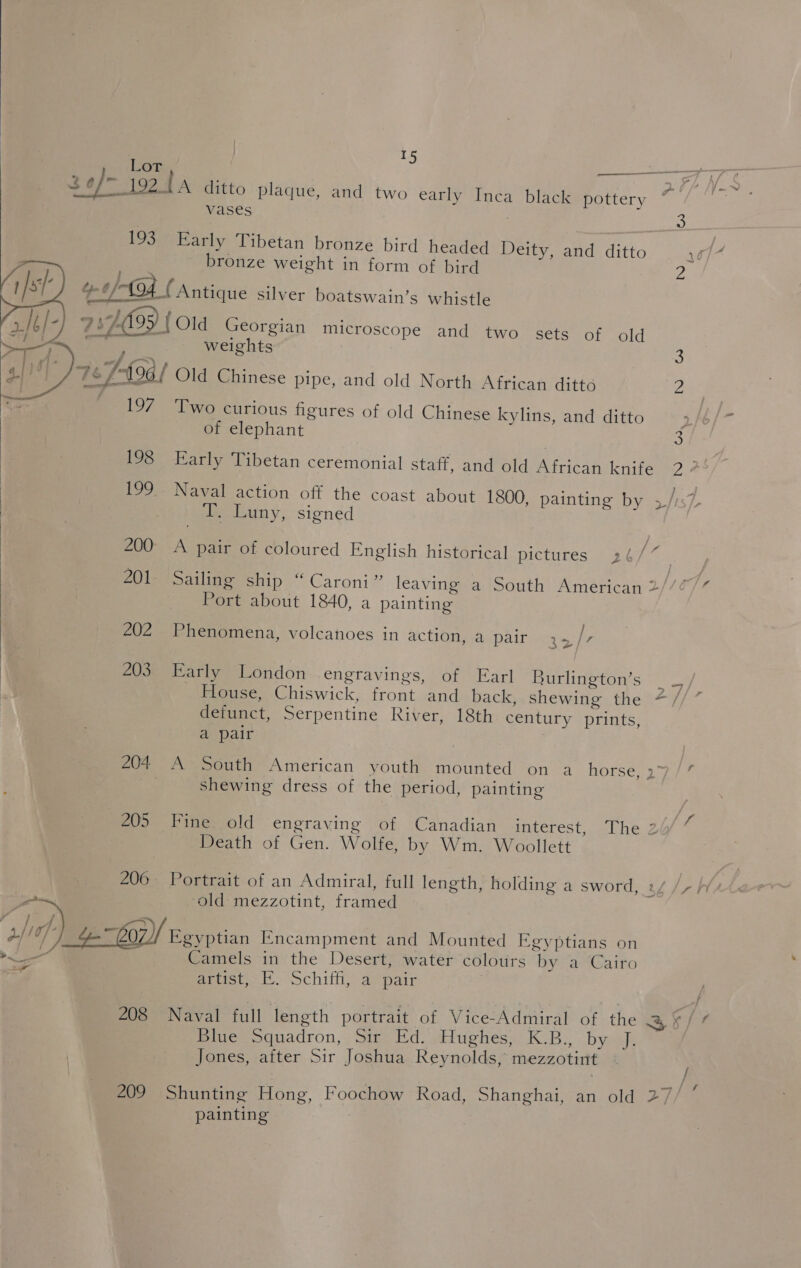 15
Lot
192 A ditto plaque, and two early Inca black pottery
vases 3
193 Early Tibetan bronze bird headed Deity, and ditto
bronze weight in form of bird 2
194 Antique silver boatswain's whistle
195 Old Georgian microscope and two sets of old
weights 3
196 Old Chinese pipe, and old North African ditto 2
197 Two curious figures of old Chinese kylins, and ditto
of elephant 3
198 Early Tibetan ceremonial staff, and old African knife 2
199 Naval action off the coast about 1800, painting by
T. Luny, signed
200 A pair of coloured English historical pictures
201 Sailing ship “Caroni” leaving a South American
Port about 1840, a painting
202 Phenomena, volcanoes in action, a pair
203 Early London engravings, of Earl Burlington's
House, Chiswick, front and back, shewing the
defunct, Serpentine River, 18th century prints,
a pair
204 A South American youth mounted on a horse,
shewing dress of the period, painting
205 Fine old engraving of Canadian interest, The
Death of Gen. Wolfe, by Wm. Woollett
206 Portrait of an Admiral, full length, holding a sword,
old mezzotint, framed
207 Egyptian Encampment and Mounted Egyptians on
Camels in the Desert, water colours by a Cairo
artist, E. Schiffi, a pair
208 Naval full length portrait of Vice-Admiral of the
Blue Squadron, Sir Ed. Hughes, K.B., by J.
Jones, after Sir Joshua Reynolds, mezzotint
209 Shunting Hong, Foochow Road, Shanghai, an old
painting